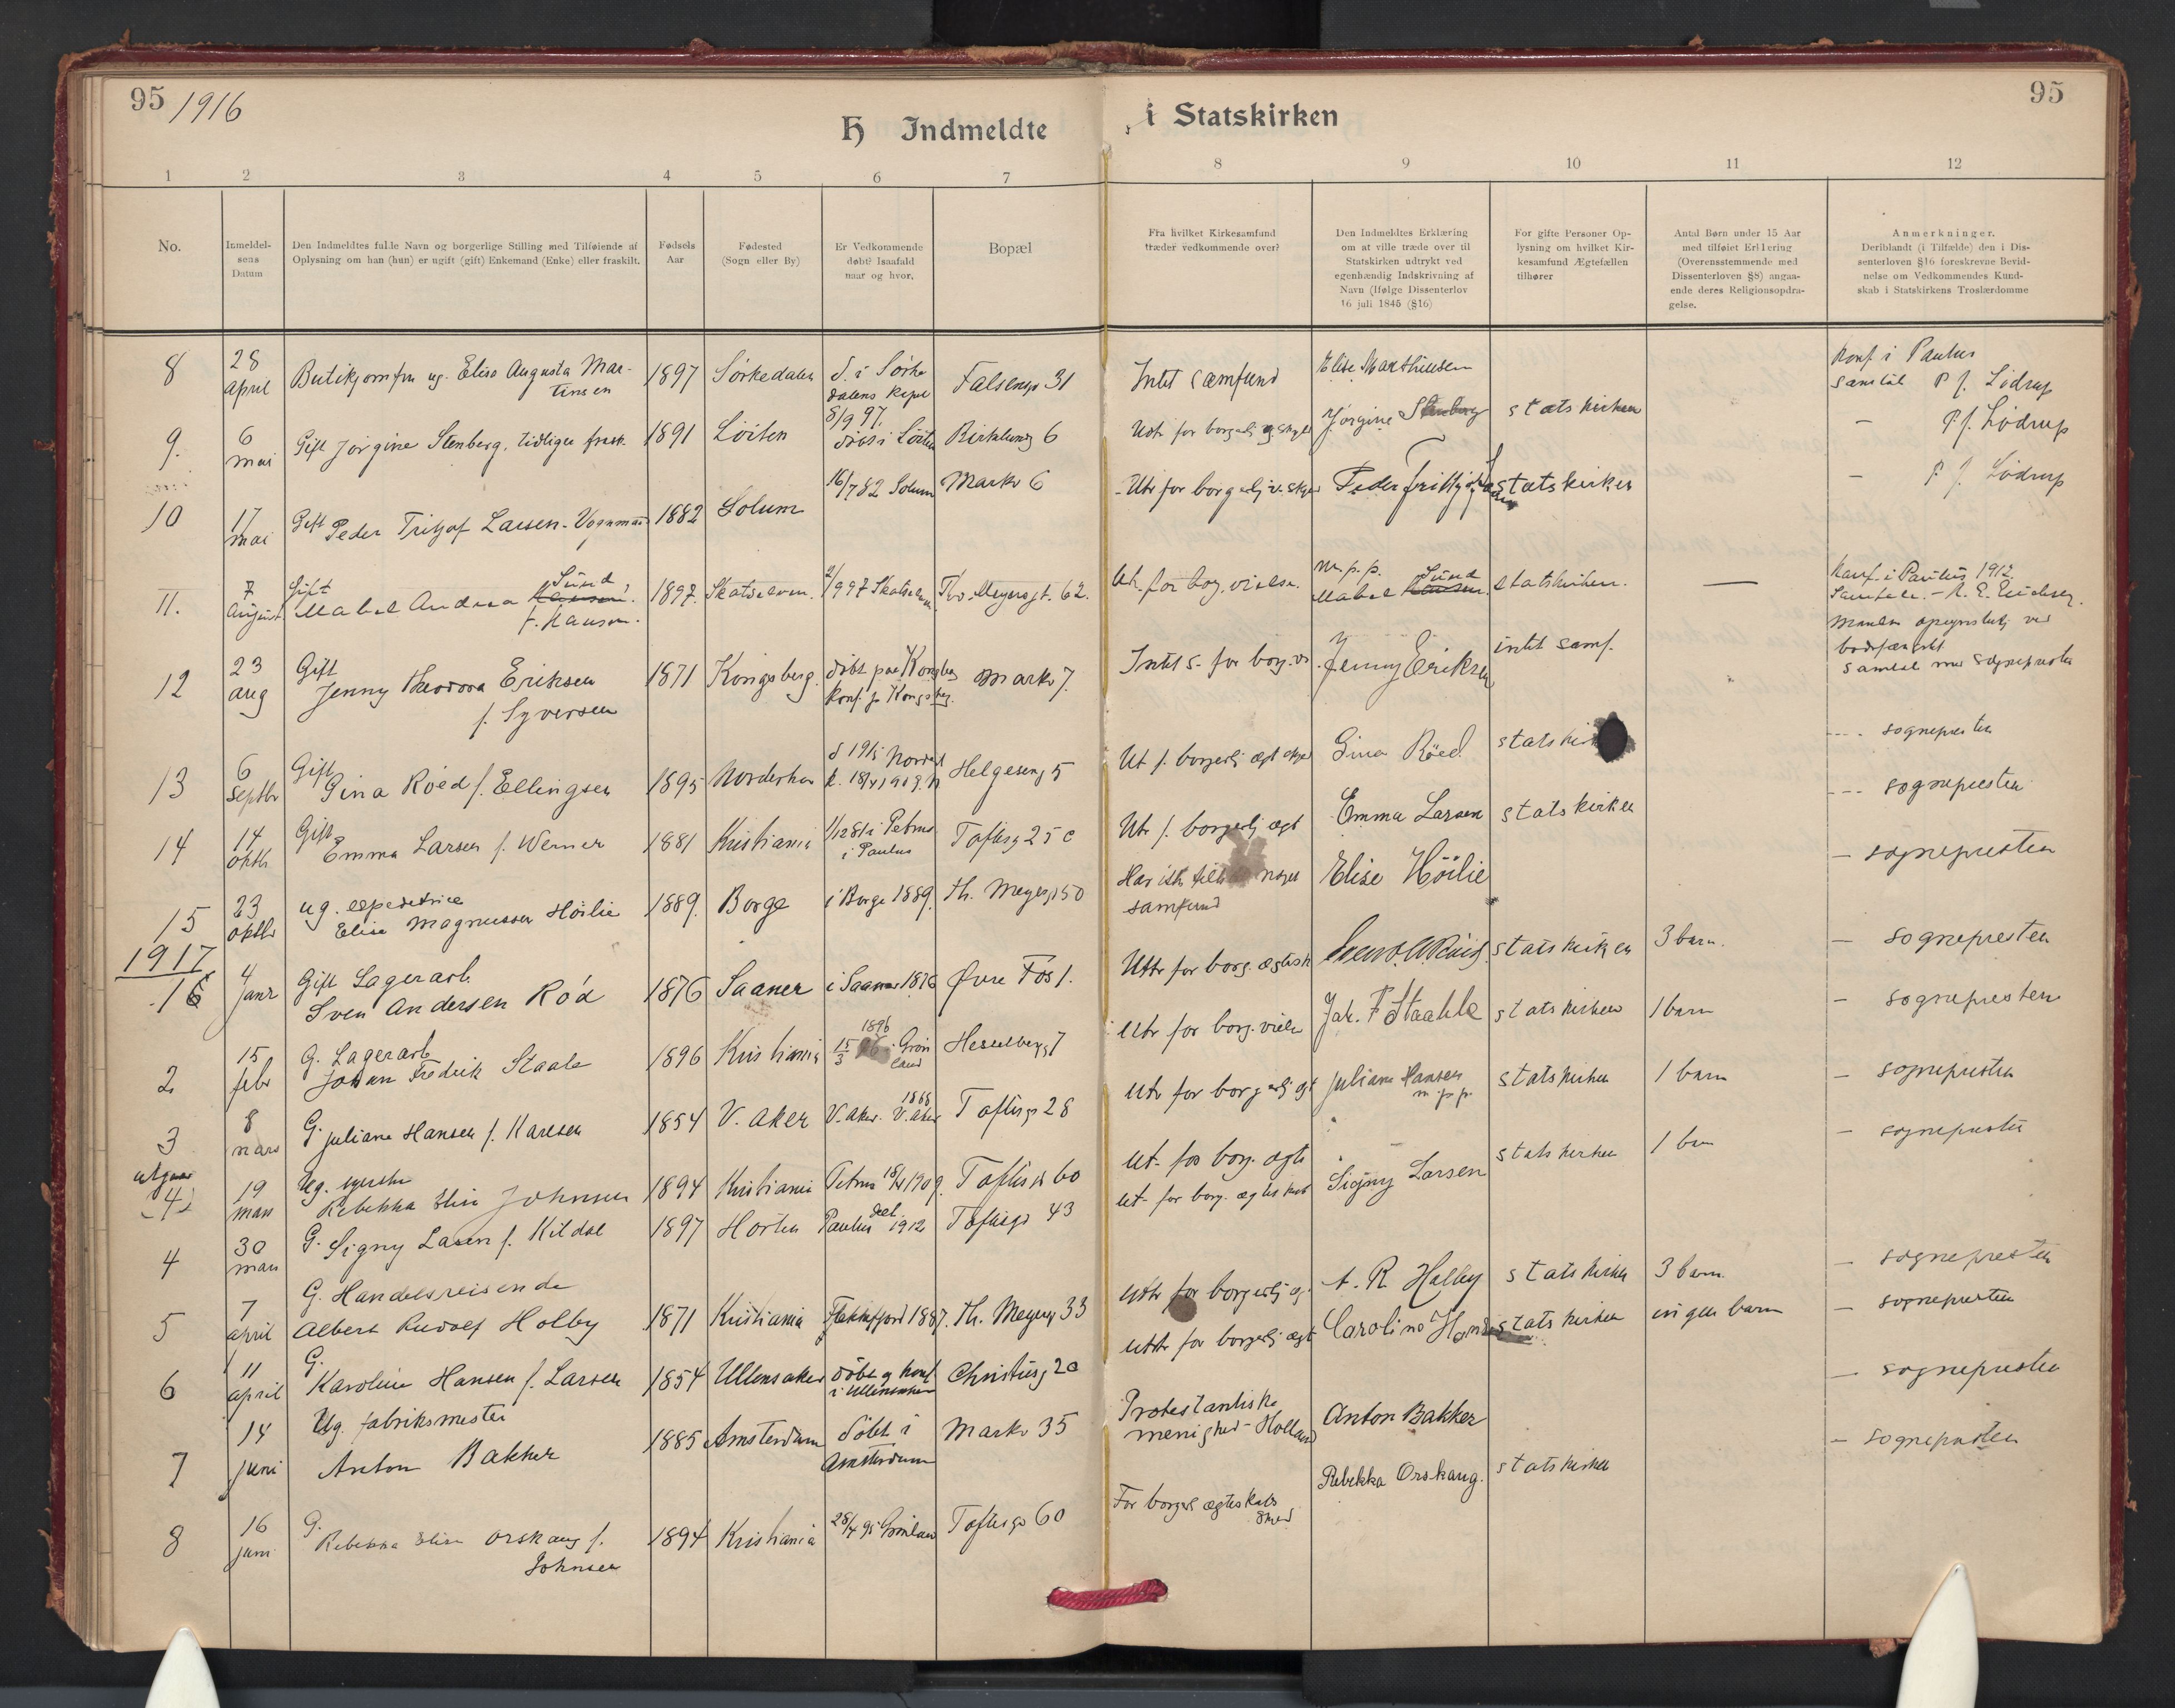 95 1916
H Indmeldte i Statskirken
95
1 2 3 4 5 6 7 8 9 10 11 12
No.
Inmeldel-
sens
Datum
Den Indmeldtes fulde Navn og borgerlige Stilling med Tilføiende af
Oplysning om han (hun) er ugift (gift) Enkemand (Enke) eller fraskilt.
Fødsels
Aar
Fødested
(Sogn eller By)
Er Vedkommende
døbt? Isaafald
naar og hvor.
Bopæl
Fra hvilket Kirkesamfund
træder vedkommende over?
Den Indmeldtes Erklæring
om at ville træde over til
Statskirken udtrykt ved
egenhændig Indskrivning af
Navn (Ifølge Dissenterlov
16 juli 1845 (§16)
For gifte Personer Op-
lysning om hvilket Kir-
kesamfund Ægtefællen
tilhører
Antal Børn under 15 Aar
med tilføiet Erklæring
(Overensstemmende med
Dissenterloven §8) angaa-
ende deres Religionsopdra-
gelse.
Anmerkninger.
Deriblandt (i Tilfælde) den i Dis-
senterloven §16 foreskrevne Bevid-
nelse om Vedkommendes Kund-
skab i Statskirkens Troslærdomme
8 28 april Butikjomfru ug. Elise Augusta Mar-
tinsen 1897 Sørkedalen d. i Sørke
dalens Kapel
8/9 97. Falsensgt 31 Intet samfund Elise Marthinsen konf i Paulus
samtal P. J. Lødrup
9. 6 mai Gift Jørgine Stenberg, tidligere frask. 1891 Løiten døbt i Løiten Birkelundg 6 Jørgine Stenberg statskirken — P. J. Lødrup
10 17 mai Gift Peder Fritjof Larsen - Vognmand 1882 Solum 16/7 82 Solum Markv 6 Utr for borgerlj v. skyld Peder Frithjof Larsen statskirken — P. J. Lødrup
11. 7 August Gift
Mabel Andrea Hansen. Sund,
f. Hanson. 1897. Skatselven. 2/9 97 Th. Meyersgt. 62. Ut. for borg. vielse. m. p. p.
Mabel Hansen. Sund statskirken. — Konf. i Paulus 1912
Samtale. -
12 23 aug Gift
Jenny Theodora Eriksen
f. Syversen 1871 Kongsberg. døbt paa Kongsberg
konf. p. Kongsberg. Markv 7. Intet s. for borg. vi. Jenny Eriksen intet samf.
samtal med sognepresten
13 6 Septbr Gift
Gina Røed f. Ellingsen 1895 Norderhov Helgeseng 5 Ut f. borgerlj ægt skyld Gina Röed statskirken — sognepresten
14 14 oktb Gift
Emma Larsen f. Werner 1881 Kristiania 1/12 81 i Petrus
i Paulus Toftesg 25 c Utr f. borgerlj ægt Emma Larsen statskirken — sognepresten
15 23 oktbr ug. espeditrice
Elise Magnussen Høilie 1889. Borge i Borge 1889. Th. Meyersgt 50 Har ikke noget
samfund Elise Höilie — sognepresten
1917
16 4 Janr Gift Lagerarb.
Sven Andersen Rød 1876 Saaner i Saaner 1876 Øvre Fos 1. Uttr for borg. ægtesk statskirken 3 barn. — sognepresten
2 15 febr G. Lagerarb
Johan Fredrik Staale 1896 Kristiania 15/3 1896 Grøn
land Hesselbergg 7 Utr for borg. vielse Joh. F Staahle statskirken 1 barn — sognepresten
3 8 mars G. Juliane Hansen f. Karlsen 1854 V. Aker V. Aker. V. Aker 1868 Toftesgt 28 Utr for borgerlj ægt Juliane Hansen
m. p. p. statskirken 1 barn — sognepresten
utgaar
(4) 19 mars Ug. syerske
Rebekka Elise Johnsen 1894 Kristiania Petrus 1909. Toftesgt 60 Ut- for borg. ægte statskirken 1 barn — sognepresten
4 30 mars G. Signy Larsen f. Kildal 1897 Horten Paulus 1912 Toftesgt 43 ut- for borg. ægteskab Signy Larsen
5 7 april G. Handelsreisende
Albert Rudolf Holby 1871 Kristiania Flekkefjord 1887. Th. Meyersg 33 Uttr for borgerlj æg. A. R. Holby statskirken 3 barn. — sognepresten
6 11 april G.
Karoline Hansen f. Larsen 1854 Ullensaker døbt og konf
i Ullensaker Christiesg 20 uttr for borgerlj ægt Caroline Hansen statskirken ingen barn — sognepresten
7 14 juni Ug. fabriksmester
Anton Bakker 1885 Amsterdam døbt i
Amsterdam Markv 35 Protestantiske
menighed - Holland Anton Bakker — sognepresten
8 16 juni G.
Rebekka Elise Orskaug f.
Johnsen 1894 Kristiania 28/4 95 Grønland Toftesgt 60 For borgerl ægteskabs
skyld Rebekka Orskaug. statskirken — sognepresten